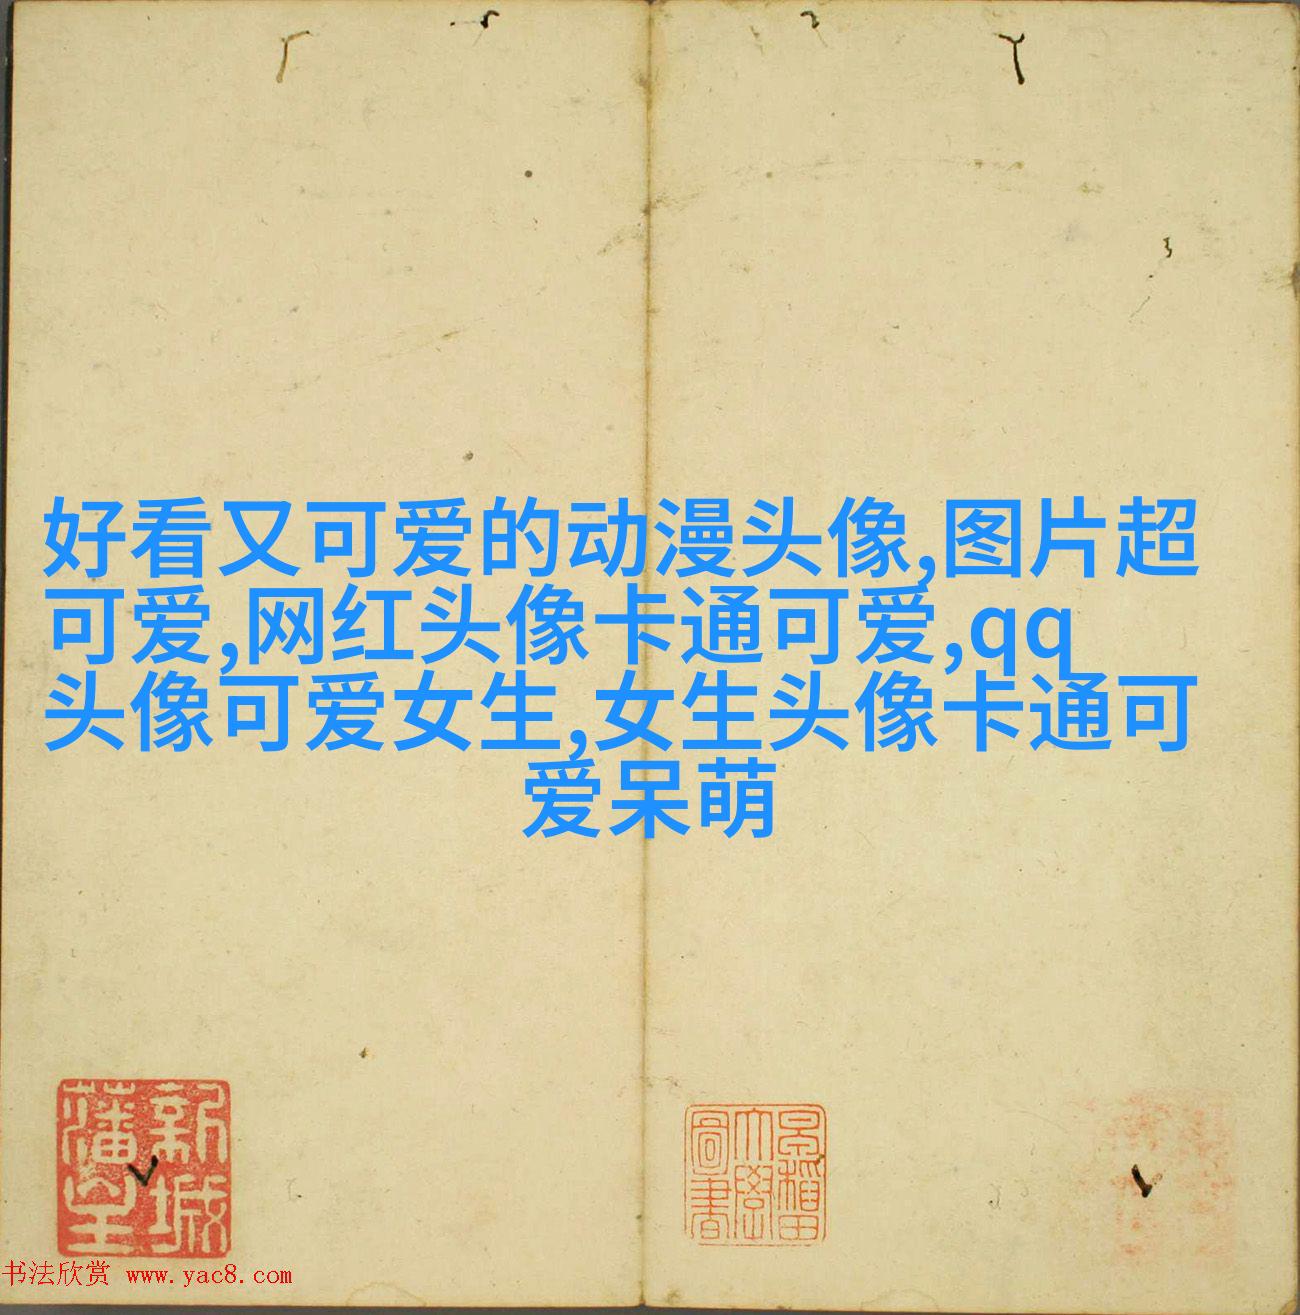 好看又可爱的动漫头像,图片超
可爱,网红头像卡通可爱,qq
头像可爱女生,女生头像卡通可
爱呆萌
新城
藩室
早稲田
大學
圖書
书法欣赏 www.yac8.com